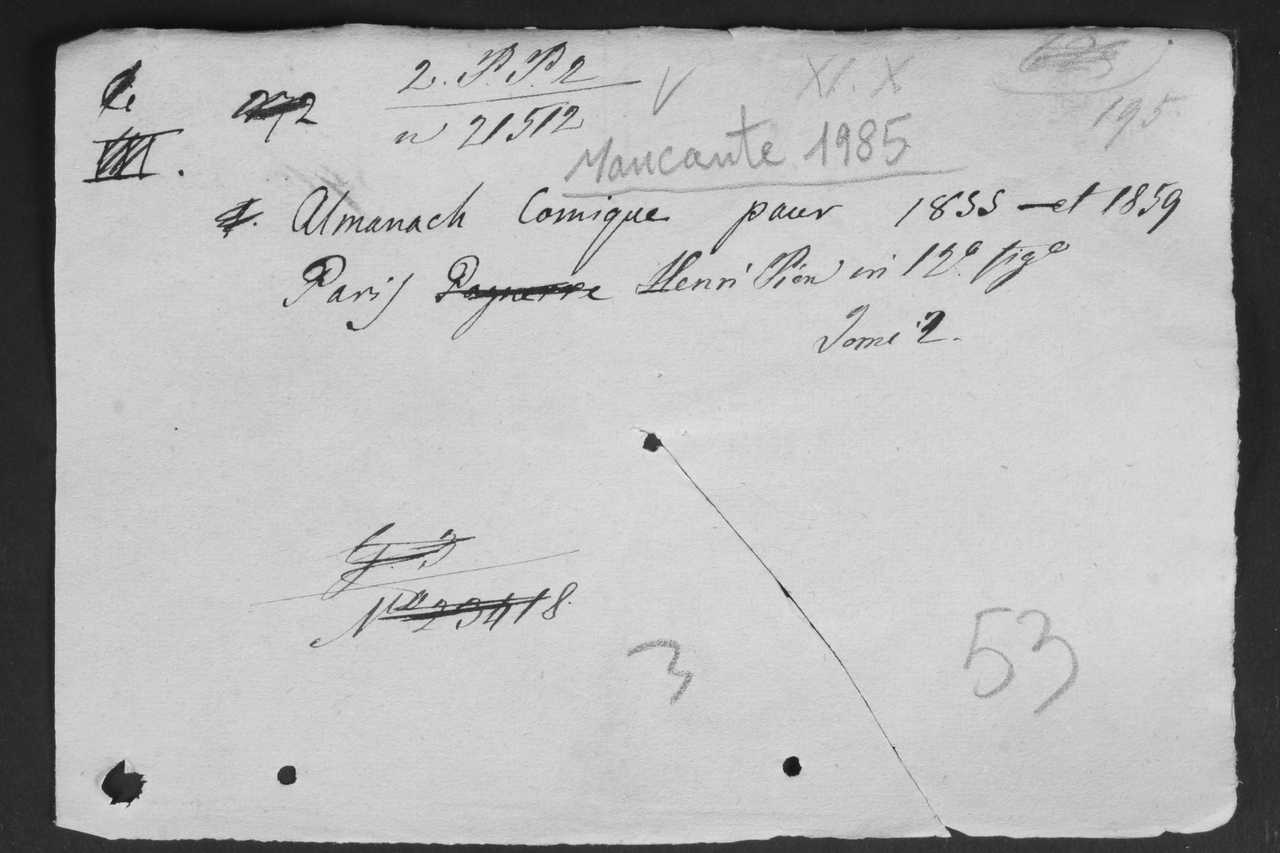 2. P. P. 2
n 21512
V XI. X
195
Mancante 1985
Almanach Comique pour 1855 - et 1859
Paris Pagnerre Henri Plon in 12º. figº
Tome 2.
Nº 23418.
3
53